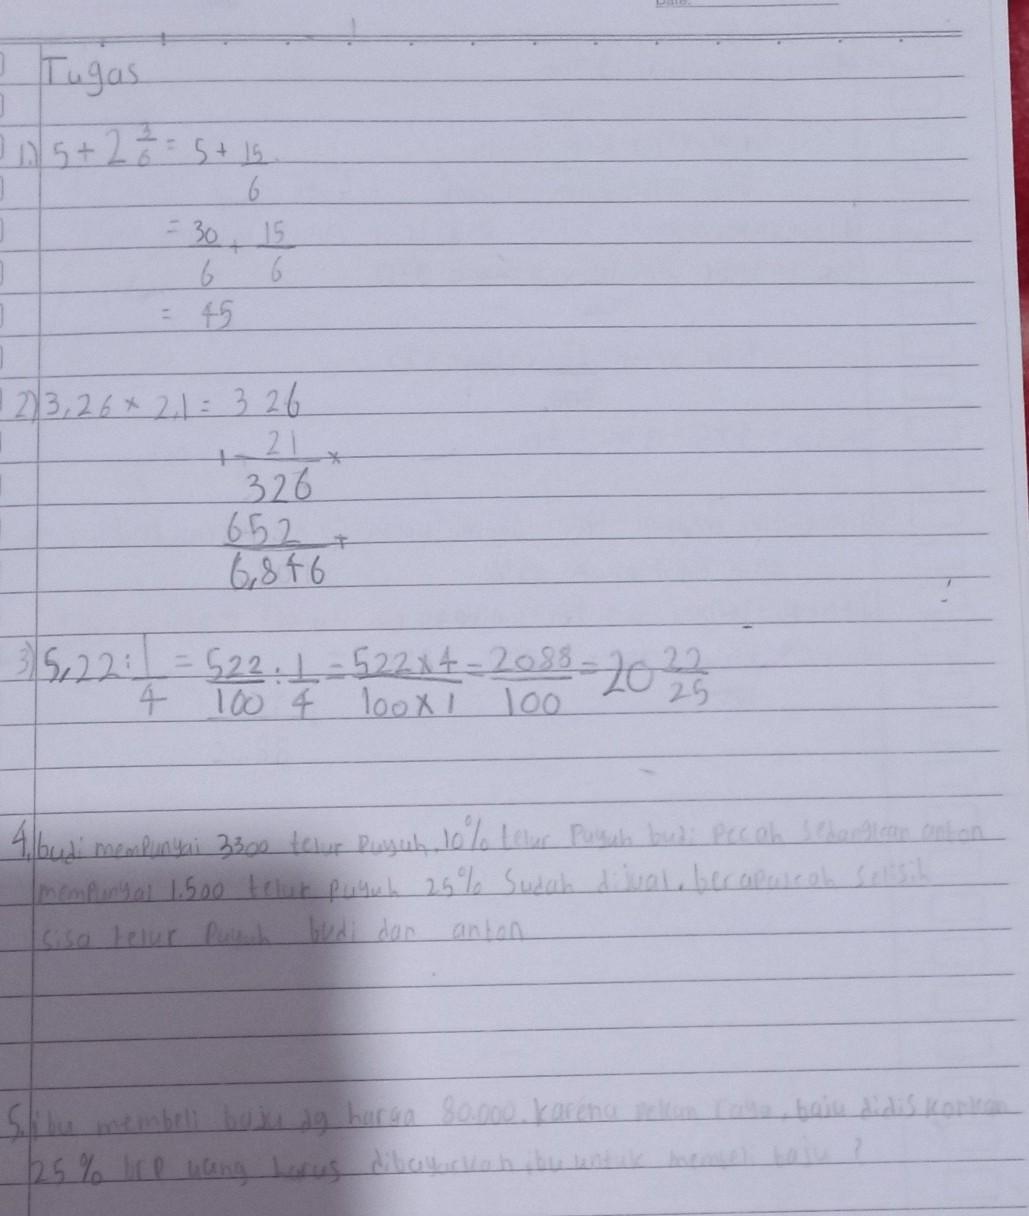 Date:
Tugas
1.) 5 + 2 3/6 = 5 + 15/6
= 30/6 + 15/6
= 45
2) 3,26 × 2,1 = 326
21 ×
326
652 +
6,846
3) 5,22 : 1/4 = 522/100 : 1/4 = 522×4/100×1 = 2088/100 = 20 22/25
4. budi mempunyai 3300 telur Puyuh. 10% telur Puyuh budi Pecah sedangkan anton
mempunyai 1.500 telur puyuh 25% Sudah dijual. berapakah selisih
sisa telur Puyuh budi dan anton
5. ibu membeli baju dg harga 80.000. karena pekan raya, baju didiskonkan
25% brp uang harus dibayarkan ibu untuk membeli baju ?